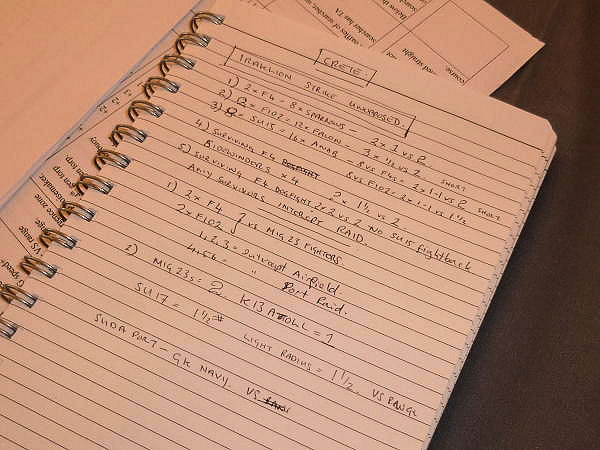 CRETE.
IRAKLION STRIKE UNOPPOSED.
1) 2x F4 = 8x SPARROWS - 2x1 VS 2
2) 2x F102 = 12x FALCON. 3x 1/2 VS 2
3) = SU15 = 16x ANAB - 8 VS F4S = 2x1-1 VS 2 SHORT
8 VS F102 = 2x1-1 VS 1 1/2 SHORT
4) SURVIVING F4
SIDEWINDERS x4 2x 1 1/2 VS 2.
5) SURVIVING F4 DOGFIGHTS 2x2 VS 2 NO SU15 FIGHTBACK
ANY SURVIVORS INTERCEPT RAID.
1) 2x F4
2x F102 } VS MIG 23 FIGHTERS
1,2,3 = Intercept Airfield.
4,5,6 = " Port Raid.
2) MIG 23s = 2. K13 ATOLL = 1
SU17 = 1 1/2 LIGHT RADIUS = 1 1/2. VS RANGE
SUDA PORT - GK NAVY. VS